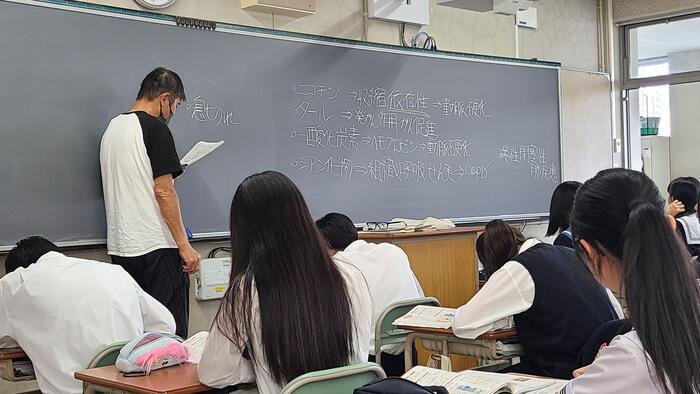 息切れ
○ニコチン ⇒収縮 依存性→動脈硬化
○タール ⇒発がん作用 がん促進
○一酸化炭素⇒ヘモグロビン→動脈硬化
○シアン化物⇒組織呼吸せん害→COPD
慢性閉塞性
肺疾患